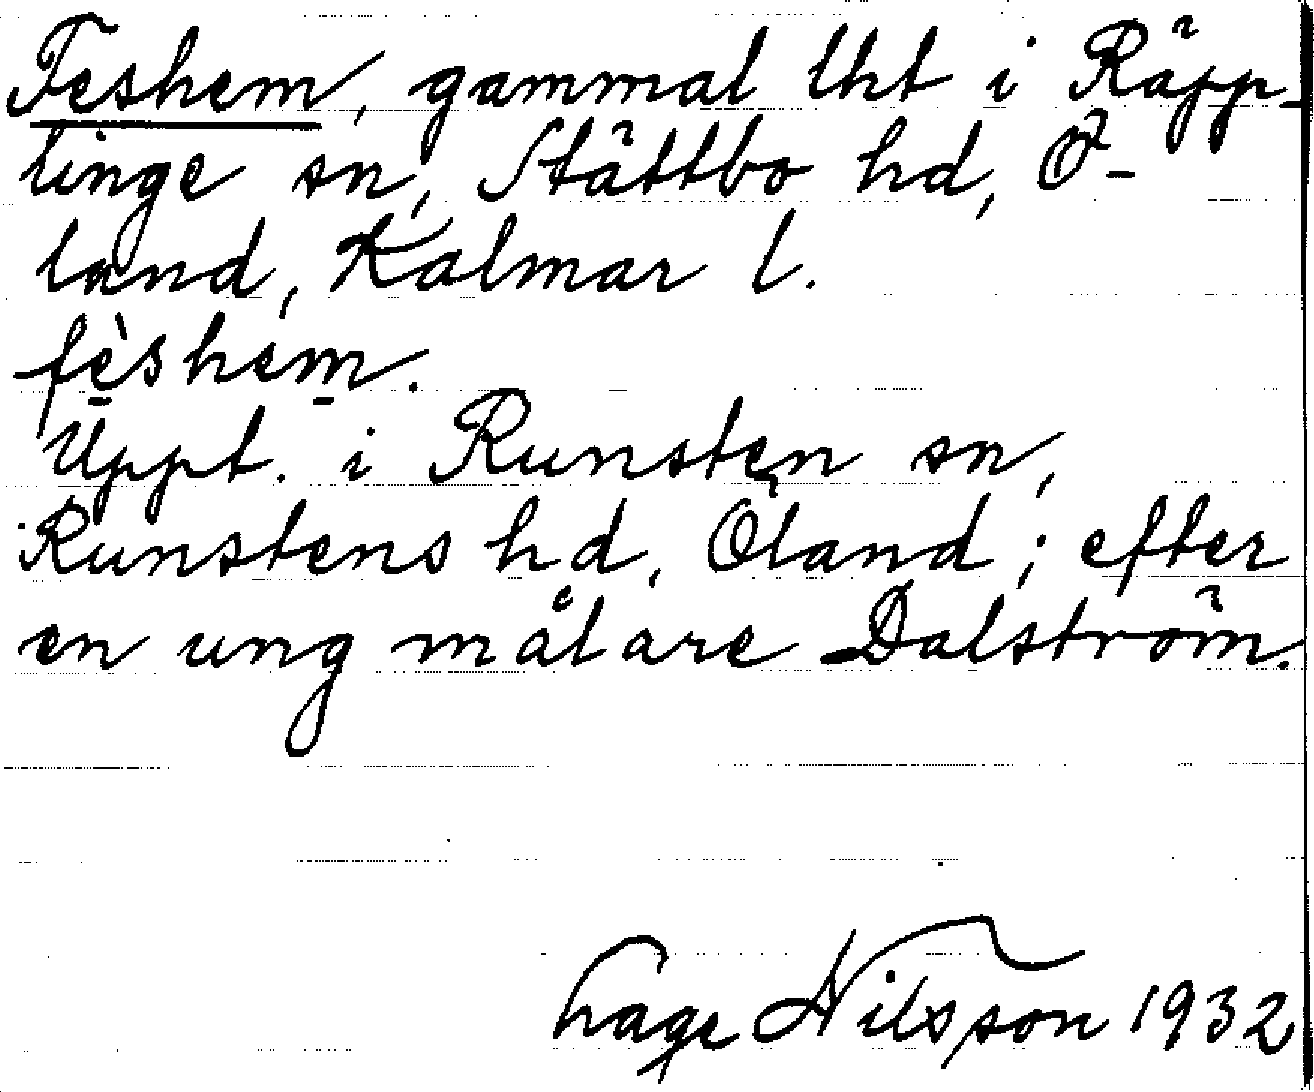 Feshem, gammal lht i Räpp-
linge sn, Stättbo hd, Ö-
land, Kalmar l.
fèshém.
Uppt. i Runsten sn,
Runstens hd, Öland; efter
en ung målare Dalström.
hage Nilsson 1932